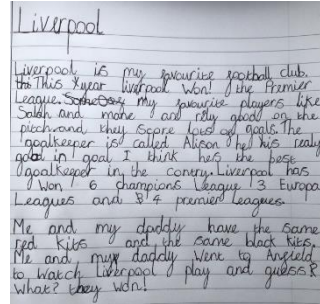 Liverpool
Liverpool is my favourite football club.
This year liverpool won! the Premier
League. my favourite players like
Salah and mane are rely good on the
pitch and they score lots of goals. The
goalkeeper is called Alison he his realy
good in goal I think he's the best
goalkeeper in the contry. Liverpool has
Won 6 champions League 3 Europa
Leagues and 4 premier Leagues.
Me and my daddy have the same
red kits and the same black kits.
Me and my daddy went to Angield
to watch Liverpool play and guess
What? they won!